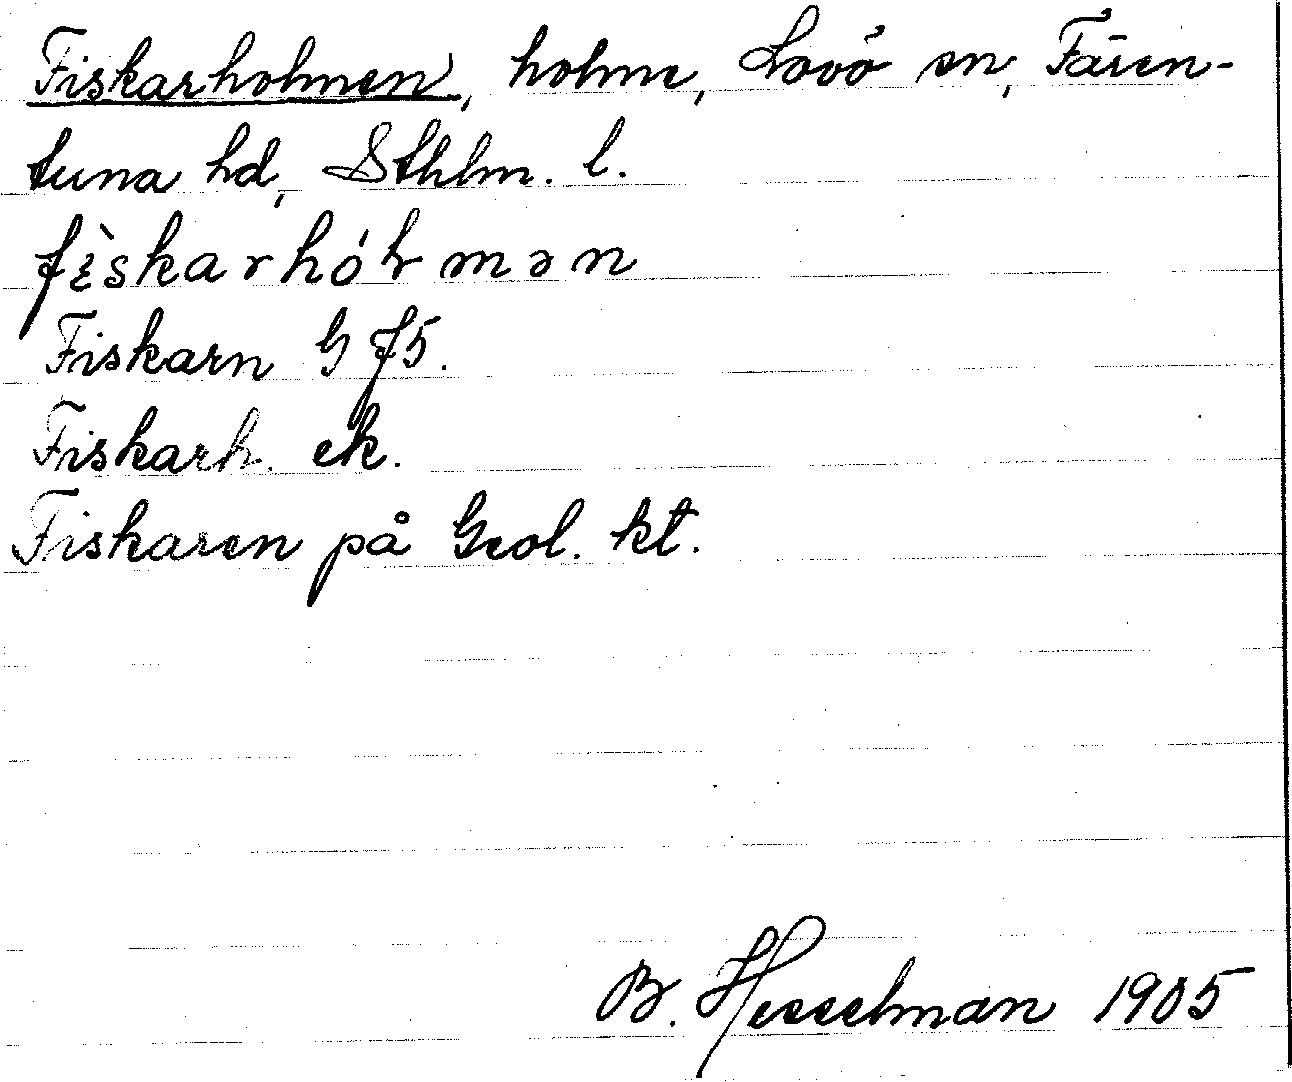 Fiskarholmen, holme, Lovö sn, Fären-
tuna hd, Sthlm. l.
fìskarhólmən
Fiskarn G f5.
Fiskarh. ek.
Fiskaren på Geol. kt.
B. Hesselman 1905